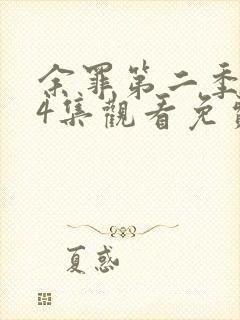 余罪第二季
4集觀看免
夏惑